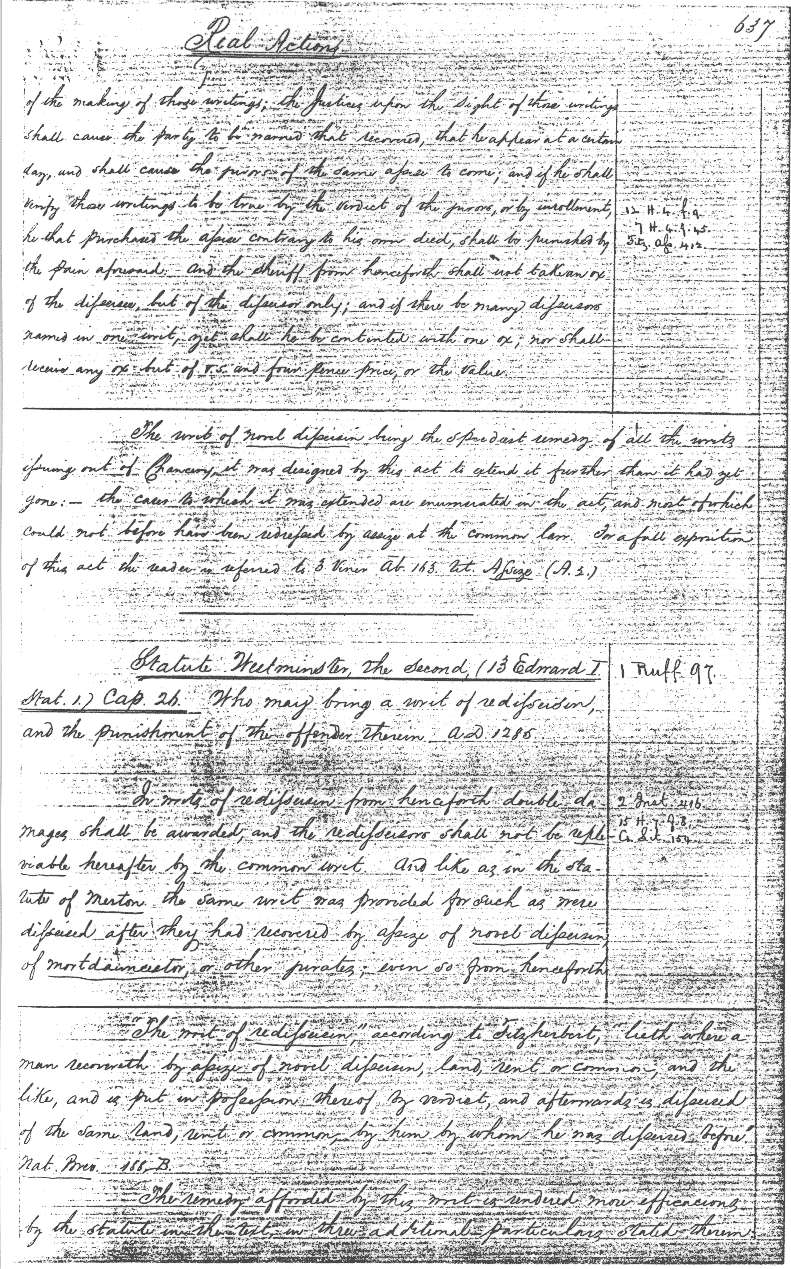 637
Real Actions.
of the making of those writings; the Justices upon the sight of those writings
shall cause the party to be named that recovered, that he appear at a certain
day, and shall cause the jurors of the same assise to come; and if he shall
verify those writings to be true by the verdict of the jurors, or by inrollment,
he that purchased the assise contrary to his own deed, shall be punished by
the pain aforesaid. And the sheriff from henceforth shall not take an ox
of the disseisee, but of the disseisor only; and if there be many disseisors
named in one writ, yet shall he be contented with one ox; nor shall
receive any ox but of v.s. and four pence price, or the value.
12 H. 4. f. 9.
7 H. 4. f. 45.
Fitz. Ass. 412.
The writ of novel disseisin being the speediest remedy of all the writs
issuing out of Chancery, it was designed by this act to extend it further than it had yet
gone:— the cases to which it was extended are enumerated in the act, and most of which
could not before have been redressed by assize at the common law. For a full exposition
of this act the reader is referred to 3 Viner Ab. 163. tit. Assize (A. 2.)
Statute Westminster, the second, (13 Edward I
Stat. 1.) Cap. 26. Who may bring a writ of redisseisin,
and the punishment of the offender therein. A.D. 1285
1 Ruff. 97.
In writs of redisseisin from henceforth double da-
mages shall be awarded, and the redisseisors shall not be reple-
viable hereafter by the common writ. And like as in the sta-
tute of Merton the same writ was provided for such as were
disseised after they had recovered by assize of novel disseisin,
of mortdauncestor, or other jurates; even so from henceforth
2 Inst. 416.
15 H. 7. f. 8.
Co. Lit. 154.
"The writ of redisseisin," according to Fitzherbert, "lieth where a
man recovereth by assize of novel disseisin, land, rent or common, and the
like, and is put in possession thereof by verdict, and afterwards is disseised
of the same land, rent or common, by him by whom he was disseised before"
Nat. Brev. 188, B.
The remedy afforded by this writ is rendered more efficacious
by the statute in the text, in three additional particulars stated therein.